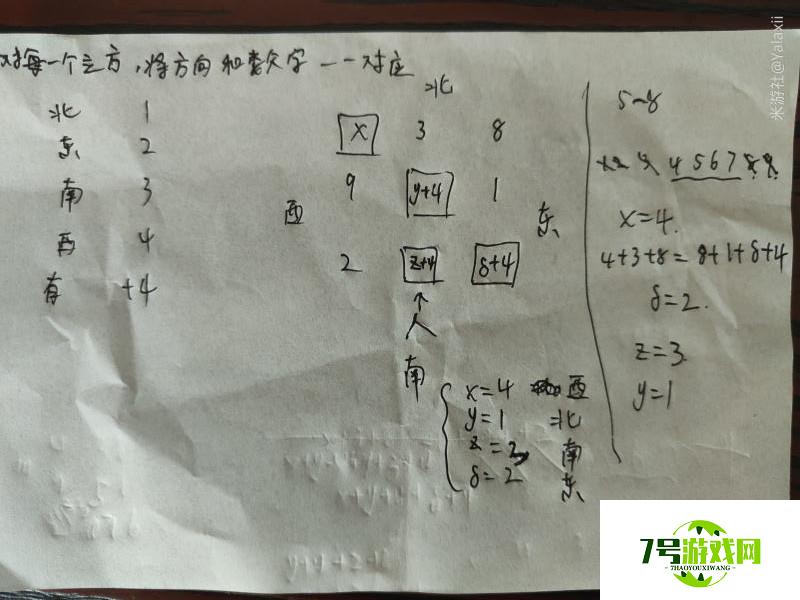 对每一个立方,将方向和数字一一对应
北 1
东 2
南 3
西 4
有 +4
北
x 3 8
9 y+4 1
西
东
2 z+4 δ+4
↑
人
南
x=4 西
y=1 北
z=3 南
δ=2 东
5~8
4 5 6 7
x=4.
4+3+8=8+1+δ+4
δ=2.
z=3.
y=1
米游社@Yalaxii
7号游戏网
7HAOYOUXIWANG